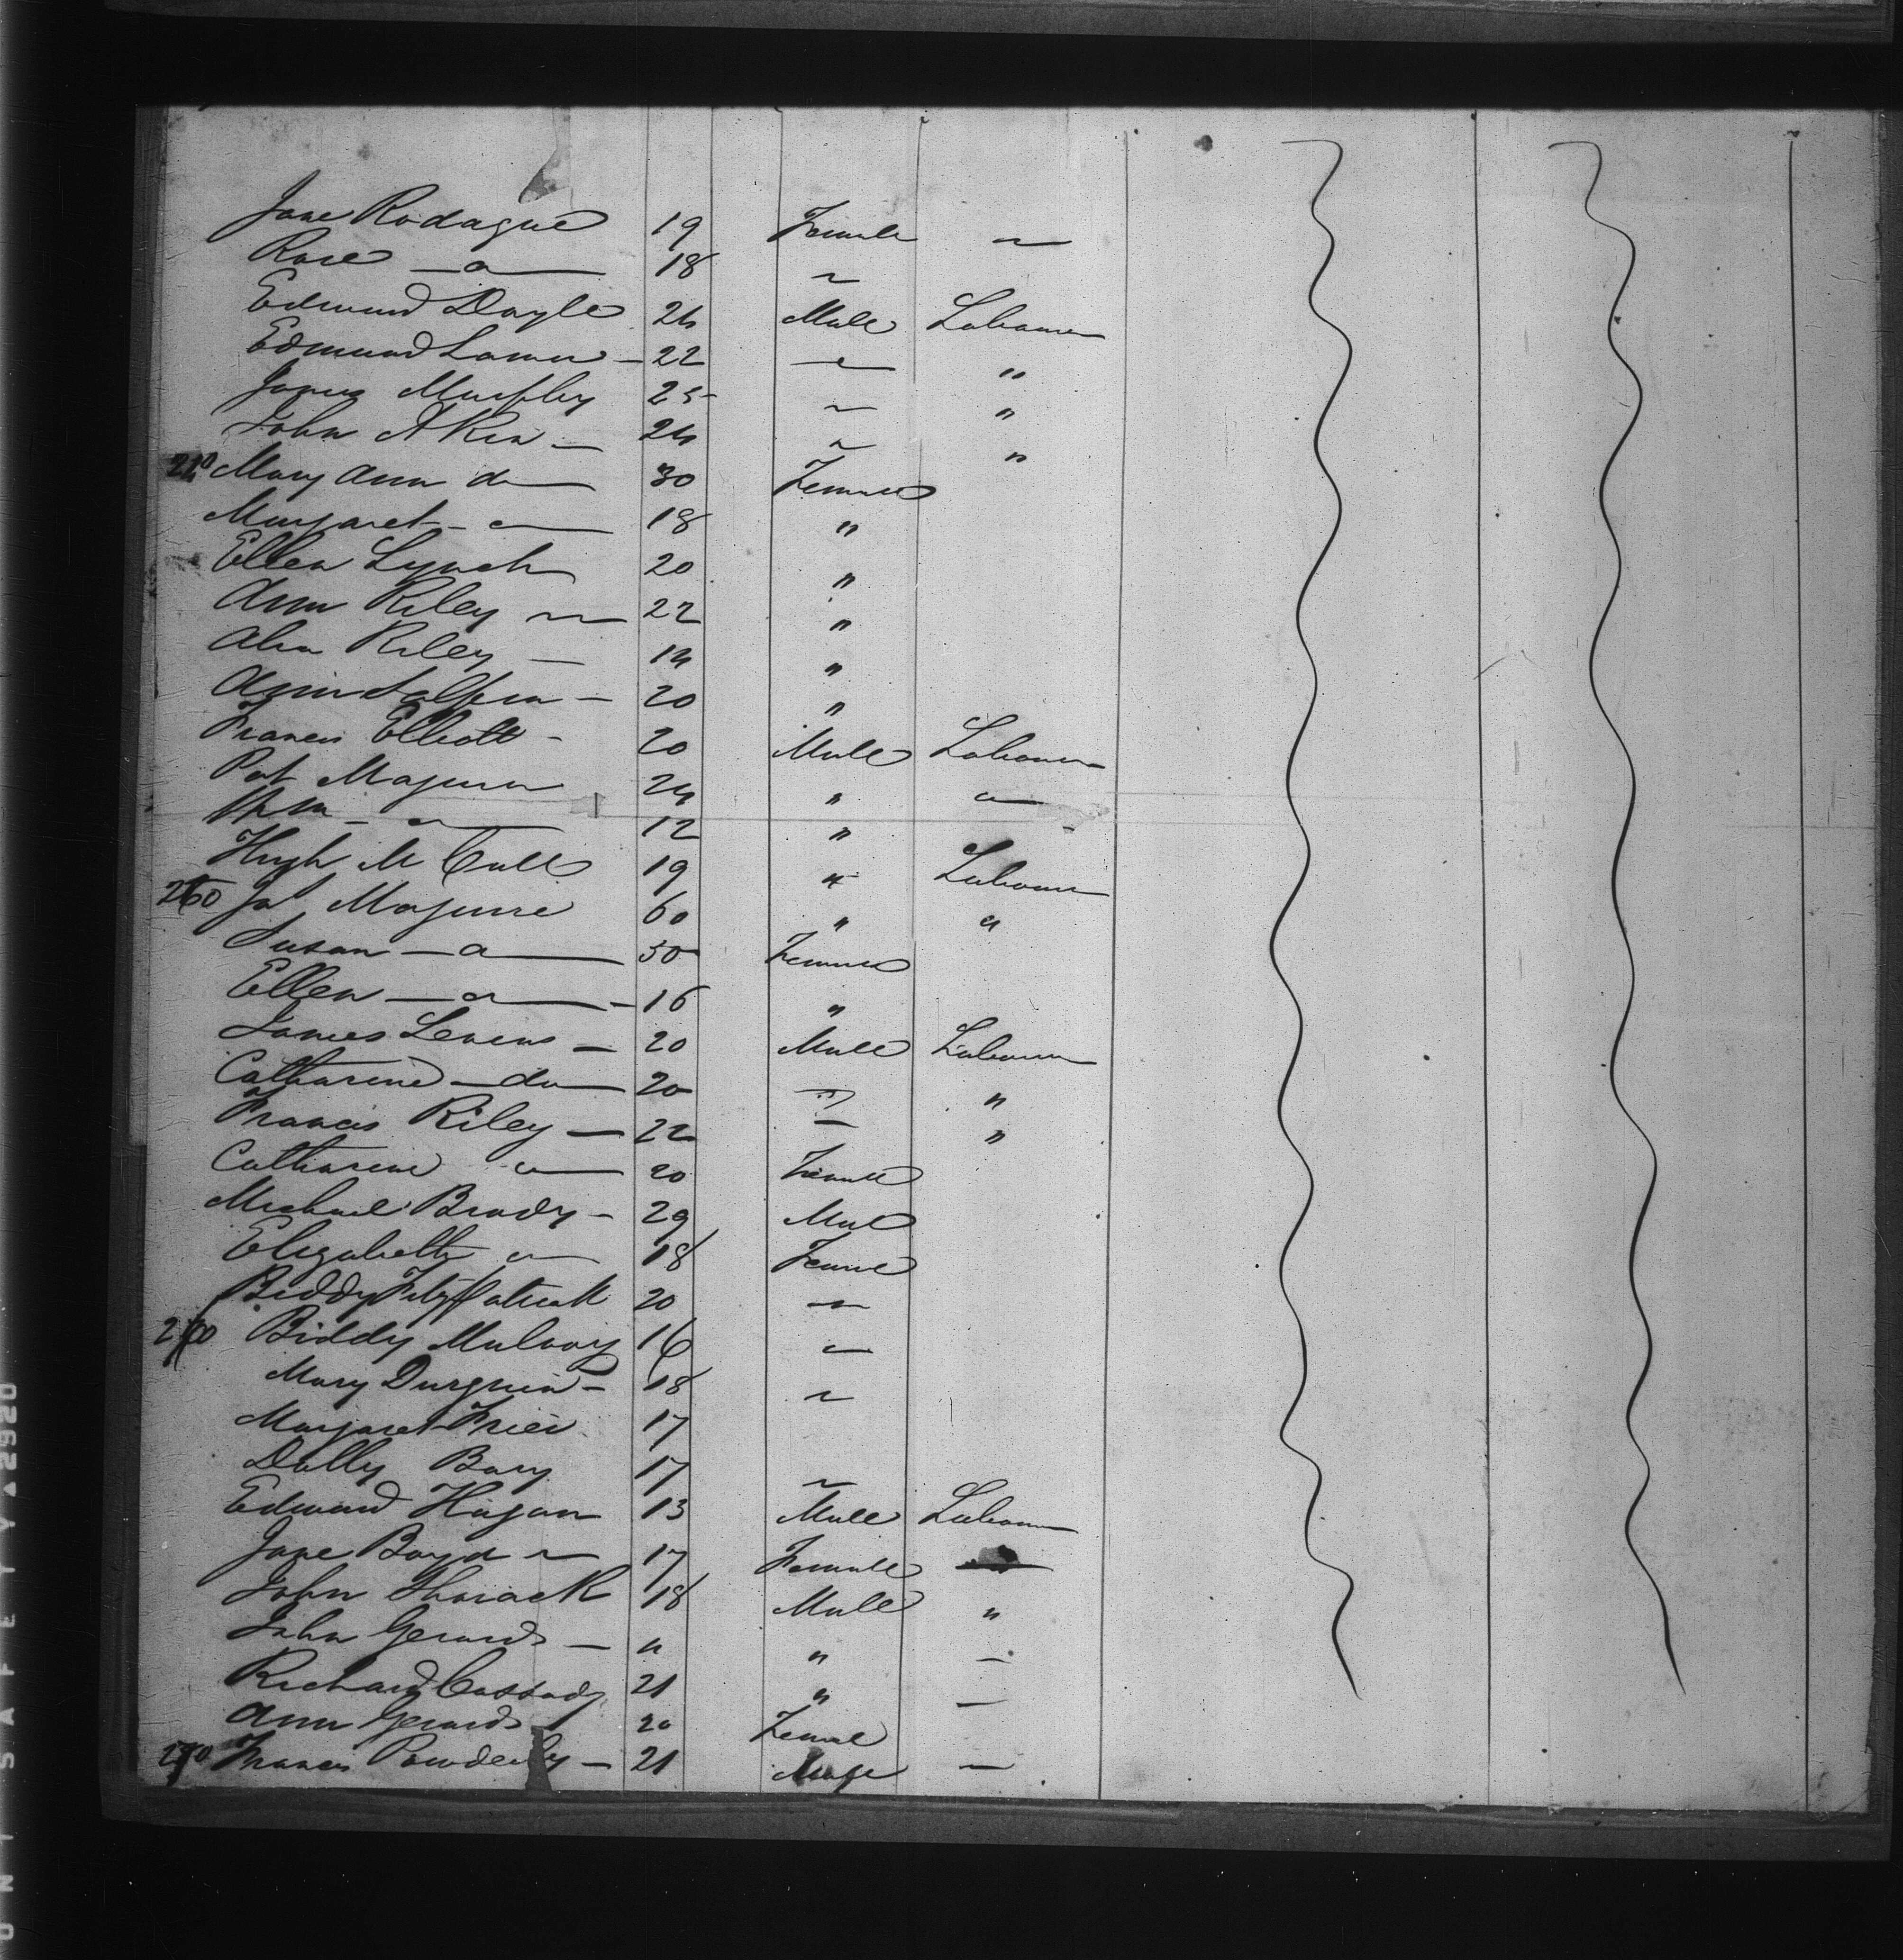 Jane Rodague 19 Female "
Rose — do — 18 "
Edmund Doyle 24 Male Labourer
Edmund — 22 " "
James Murphy 25 " "
John Akin — 24 " "
Mary Ann do — 30 Female
Margaret — do — 18 "
Ellen Lynch 20 "
Ann Riley — 22 "
Riley — 14 "
Ann — 20 "
Francis Elliott - 20 Male Labourer
Pat Maguire 24 " "
Wm — do — 12 "
Hugh McCall 19 " Labourer
250 Jas Maguire 60 " "
Susan — do — 50 Female
Ellen — do — 16 "
James Levens — 20 Male Labourer
Catharine — do — 20 " "
Francis Riley — 22 — "
Catharine do — 20 Female
Michael Brady - 29 Male
Elizabeth do — 18 Female
Biddy Fitzpatrick 20 "
260 Biddy Mulvoy 16 "
Mary Durgnin - 18 "
Margaret Frier 17
Dolly Bary 17 "
Edward Hagan 13 Male Labourer
Jane Boyd — 17 Female —
John 18 Male "
John Gerard — " " —
Richard Cassady 21 " —
Ann Gerard 20 Female
270 Francis Powderly — 21 Male —
SAFETY▲2920